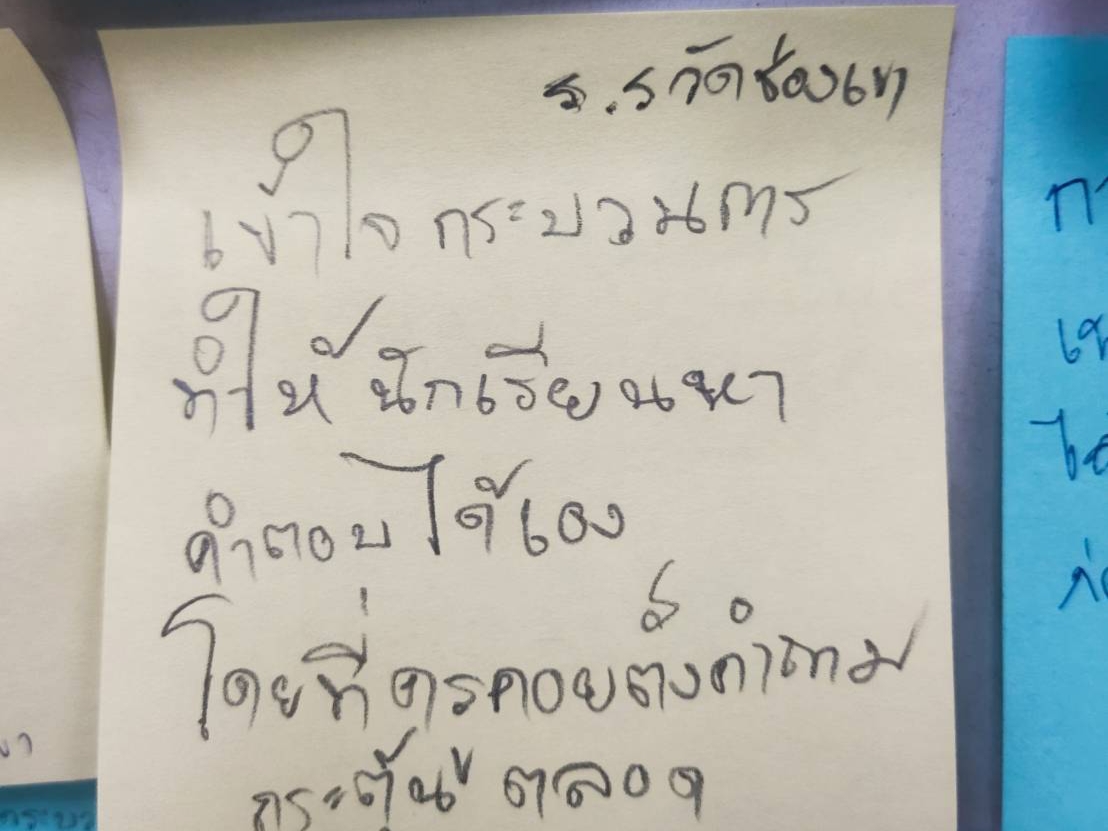 ร.ร วัดช่องเขา
เข้าใจ กระบวนการ
ทำให้ นักเรียนหา
คำตอบ ได้เอง
โดยที่ ครูคอยตั้งคำถาม
กระตุ้น ตลอด
กา
ไ
ก่